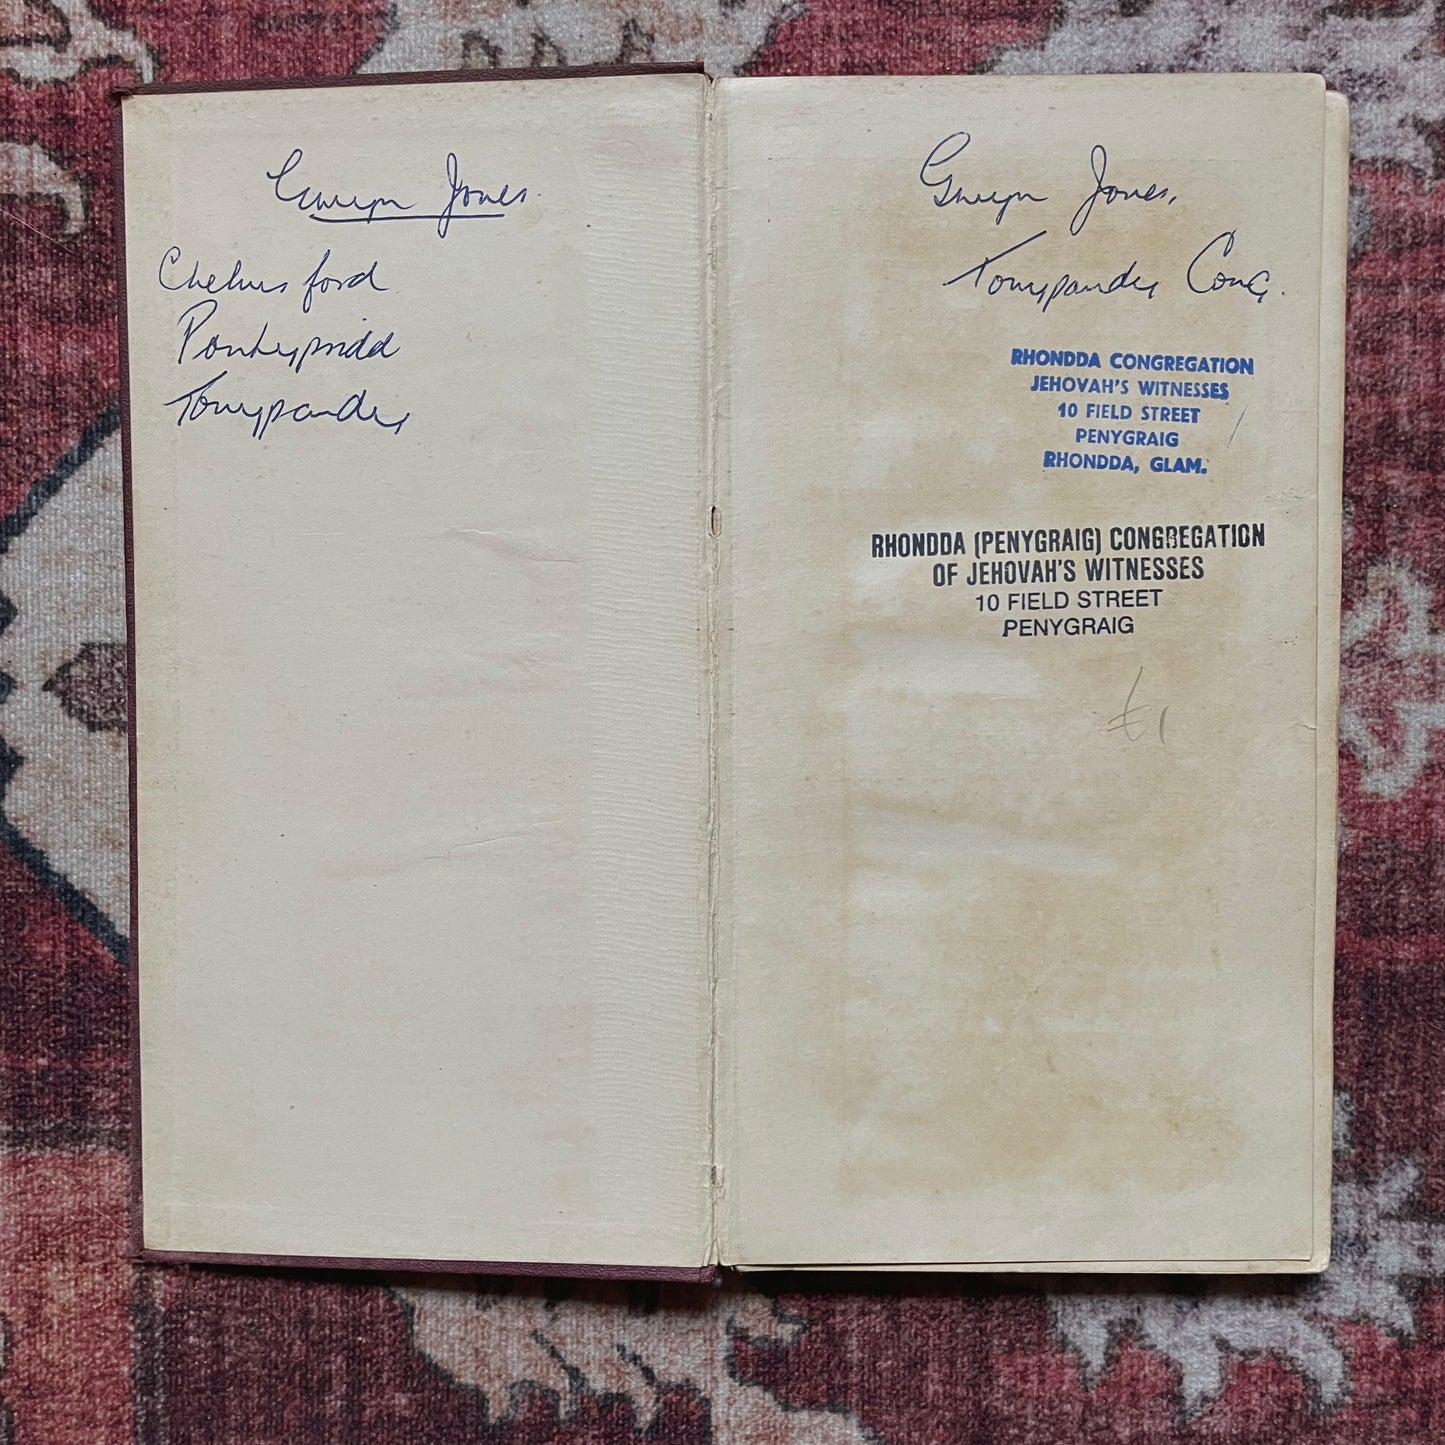 Gwyn Jones.
Chelmsford
Pontypridd
Tonypandy
Gwyn Jones,
Tonypandy Cong.
RHONDDA CONGREGATION
JEHOVAH'S WITNESSES
10 FIELD STREET
PENYGRAIG
RHONDDA, GLAM.
RHONDDA (PENYGRAIG) CONGREGATION
OF JEHOVAH'S WITNESSES
10 FIELD STREET
PENYGRAIG
£1